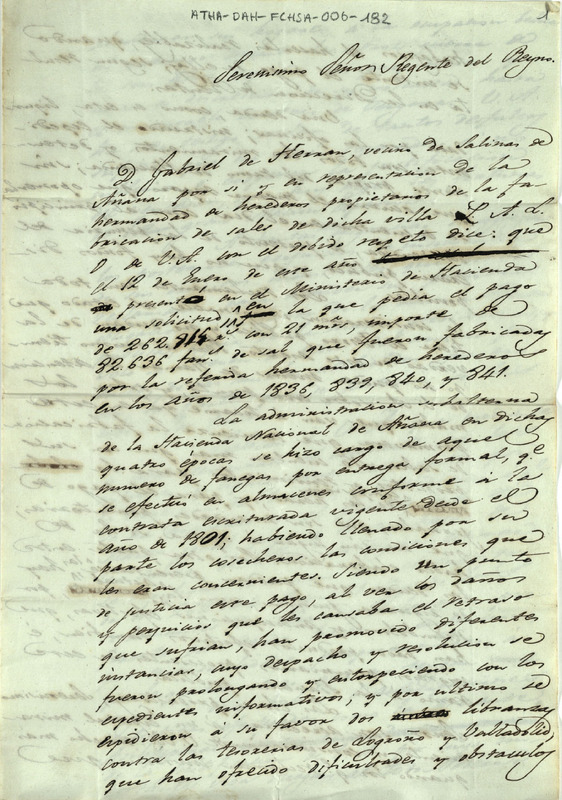 ATHA-DAH-FCHSA-006-182
1
Serenisimo Señor Regente del Reyno.
D. Gabriel de Herran, vecino de Salinas de
Añana por si y en representacion de la
hermandad de herederos propietarios de la fa-
bricacion de sales de dicha villa L. A. L.
P. de V. A. con el debido respeto dice: que
el 12 de Enero de este año
presentó en el Ministerio de Hacienda
una solicitud en la que pedia el pago
de 262. rs. con 21 mrs, importe de
82.636 fans. de sal que fueron fabricadas
por la referida hermandad de herederos
en los años de 1836, 839, 840, y 841.
La administracion subalterna
de la Hacienda Nacional de Añana en dichas
quatro épocas se hizo cargo de aquel
numero de fanegas por entrega formal, qe.
se efectuó en almacenes conforme à la
contrata escriturada vigente desde el
año de 1801; habiendo llenado por su
parte los cosecheros las condiciones que
les eran concernientes. Siendo un punto
de justicia este pago, al ver los daños
y perjuicios que les causaba el retraso
que sufrian, han promovido diferentes
instancias, cuyo despacho y resolucion se
fueron prolongando y entorpeciendo con los
espedientes informativos; y por ultimo se
espidieron à su favor dos libranzas
contra las tesorerias de Logroño y Valladolid,
que han ofrecido dificultades y obstaculos